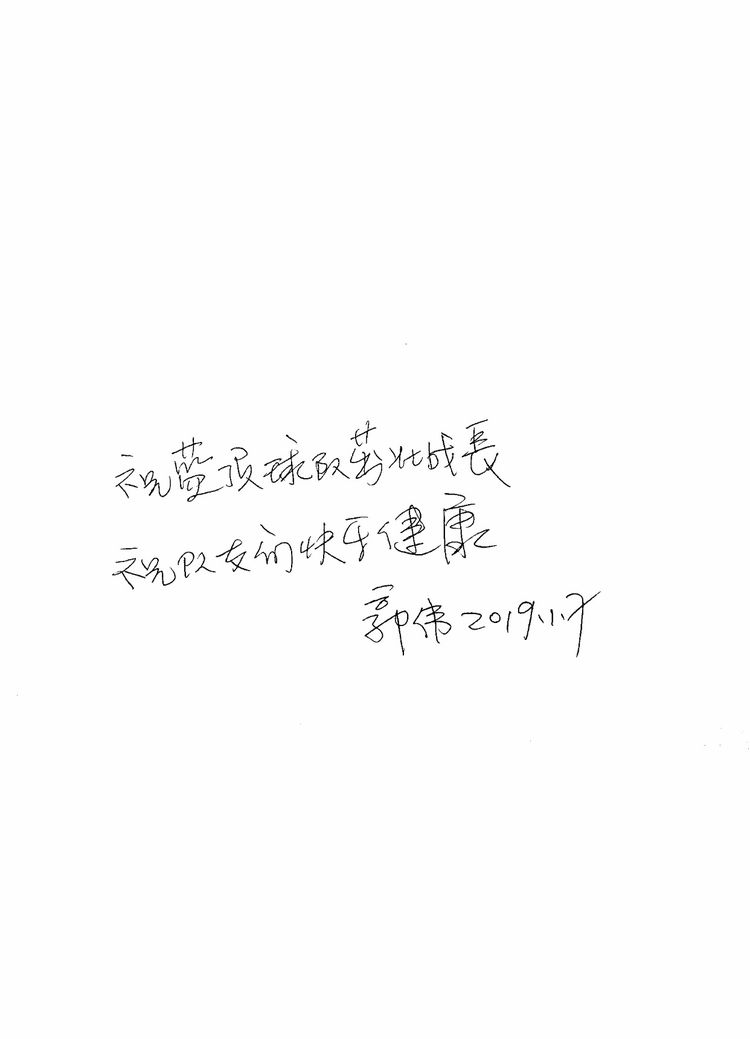 祝蓝顶球队茁壮成長
祝队友们快乐健康
郭伟2019.1.7